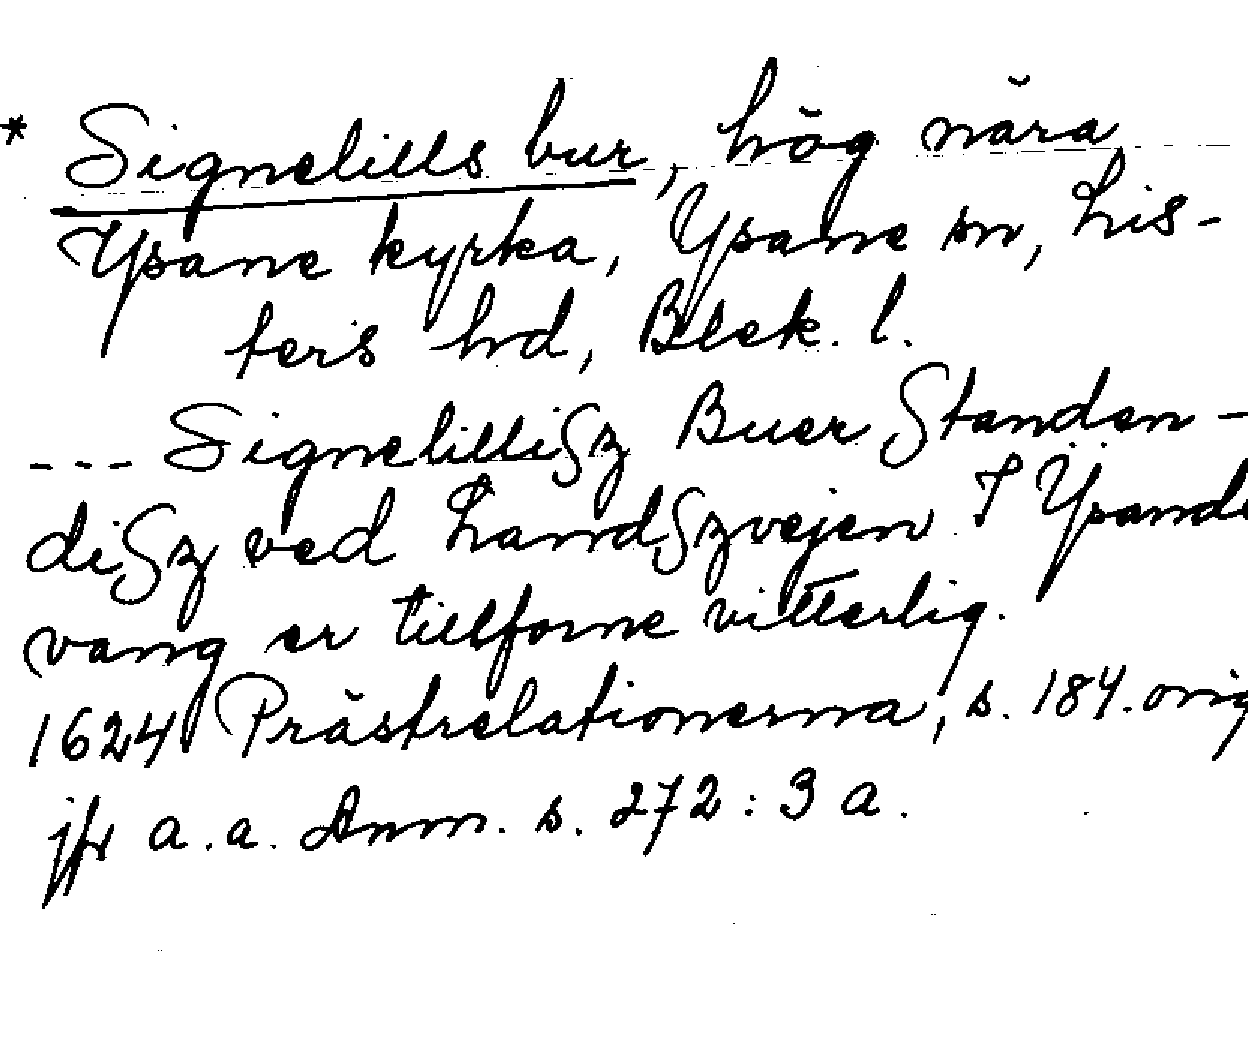 * Signelills bur, hög nära
Ysane kyrka, Ysane sn, Lis-
ters hd, Blek. l.
--- SignelilliSz Buer Standen-
diSz ved LandSzvejen I Ÿsande
vang er tillforne vitterlig.
1624 Prästrelationerna, s. 184. orig
jfr a.a. Anm. s. 272:3 a.